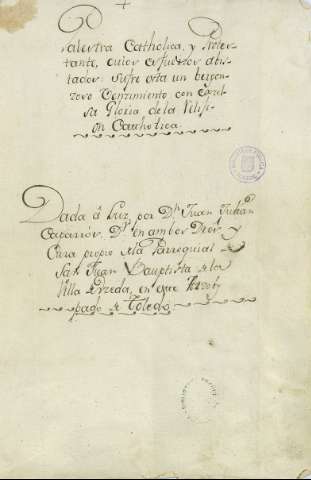 +
Palestra Catholica, y Protes-
tante, cuios esfuerzos
tador Sufre esta un
zoso Conzimiento con Egre
sia Gloria de la Religi
on Catholica.
Dada à Luz, por Dn. Juan Julian
Caparrós, Dr. en ambos Dros, y
Cura propio de la Parroquial de
San Juan Bauptista de la
Villa de en este Arzobis
pado de Toledo